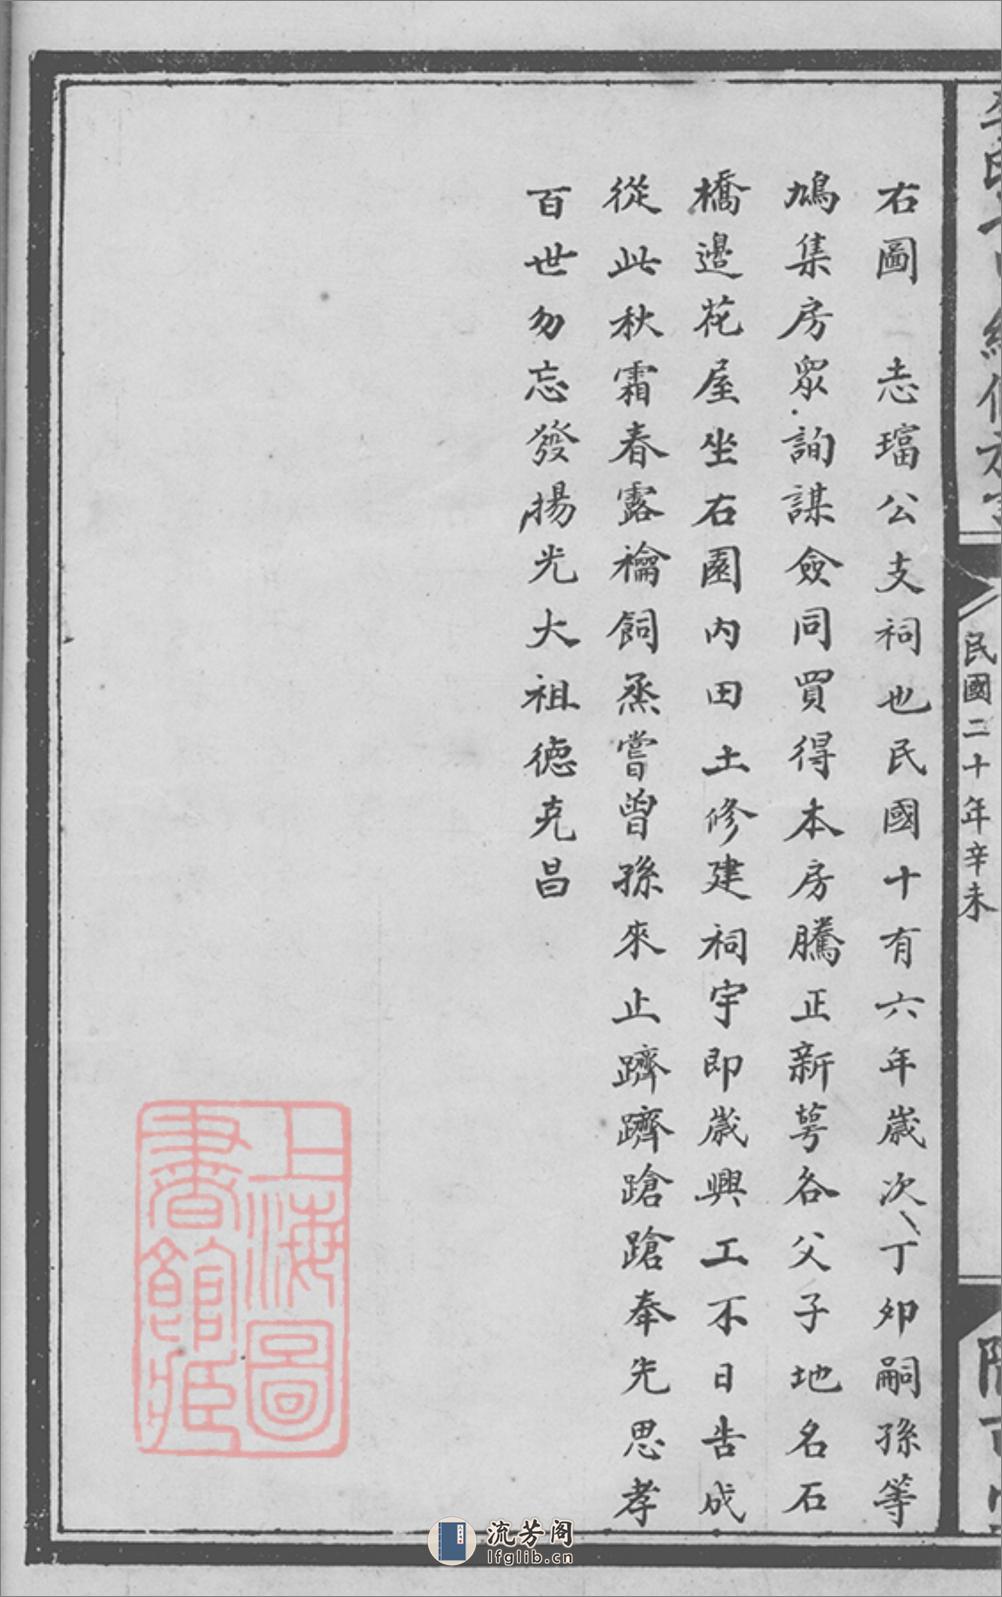 民國二十年辛未
右圖 志璫公支祠也民國十有六年歲次丁卯嗣孫等
鳩集房眾詢謀僉同買得本房騰正新蕚各父子地名石
橋邊花屋坐右園內田土修建祠宇即歲興工不日告成
從此秋霜春露禴飼烝嘗曾孫來止躋躋蹌蹌奉先思孝
百世勿忘發揚光大祖德克昌
上海圖
書館藏
流芳阁
lfglib.cn